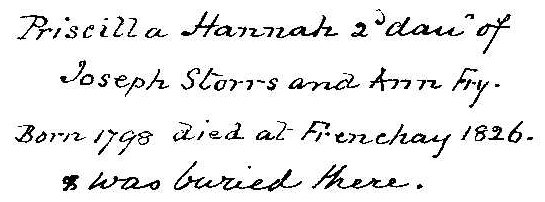 Priscilla Hannah 2ᵈ dauʳ of
Joseph Storrs and Ann Fry.
Born 1798 died at Frenchay 1826.
& was buried there.